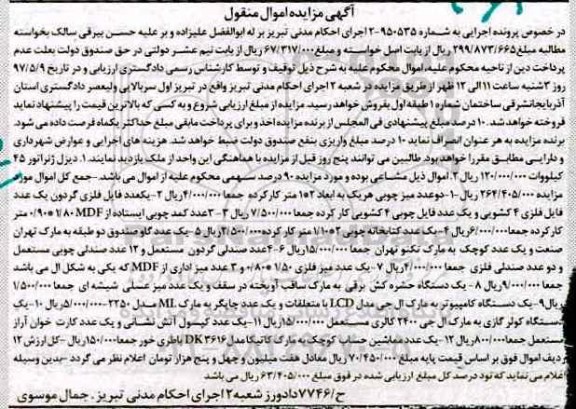 آگهی مزایده اموال منقول
در خصوص پرونده اجرایی به شماره ۹۵۰۵۳۵-۲ اجرای احکام مدنی تبریز بر له ابوالفضل علیزاده و بر علیه حسن بیرقی سالک بخواسته
مطالبه مبلغ ۲۹۹/۸۷۳/۶۶۵ ریال از بابت اصل خواسته و مبلغ ۶۷/۳۱۷/۰۰۰ ریال از بابت نیم عشر دولتی در حق صندوق دولت بعلت عدم
پرداخت دین از ناحیه محکوم علیه، اموال محکوم علیه به شرح ذیل توقیف و توسط کارشناس رسمی دادگستری ارزیابی و در تاریخ ۹۷/۵/۹
روز ۳شنبه ساعت ۱۱ الی ۱۲ ظهر از طریق مزایده در شعبه ۲ اجرای احکام مدنی تبریز واقع در تبریز اول سربالایی ولیعصر دادگستری استان
آذربایجانشرقی ساختمان شماره ۱ طبقه اول بفروش خواهد رسید. مزایده از مبلغ ارزیابی شروع و به کسی که بالاترین قیمت را پیشنهاد نماید
فروخته خواهد شد. ۱۰ درصد مبلغ پیشنهادی فی المجلس از برنده مزایده اخذ و برای پرداخت مابقی مبلغ حداکثر یکماه فرصت داده می شود.
برنده مزایده به هر عنوان انصراف نماید ۱۰ درصد مبلغ واریزی بنفع صندوق دولت ضبط خواهد شد. هزینه های اجرایی و عوارض شهرداری
و دارایی مطابق مقررا خواهد بود. طالبین می توانند پنج روز قبل از مزایده با هماهنگی این واحد از ملک بازدید نمایند. ۱. دیزل ژنراتور ۴۵
کیلووات ۱۲۰/۰۰۰/۰۰۰ ریال ۲. اموال ذیل مشاعی بوده و مورد مزایده ۹۰ درصد سهمی محکوم علیه از اموال می باشد. -جمع کل اموال مورد
مزایده ۲۶۴/۴۰۵/۰۰۰ ریال-۱-دو عدد میز چوبی هریک به ابعاد ۲*۱ متر کار کرده جمعا ۴/۰۰۰/۰۰۰ریال ۲-یکعدد فایل فلزی گردون یک عدد
فایل فلزی ۴ کشویی و یک عدد فایل چوبی ۴ کشویی کار کرده جمعا ۷/۵۰۰/۰۰۰ ریال ۳-۳عدد کمد چوبی ایستاده از MDF ۱/۸۰*۹۰
کار کرده جمعا ۶/۰۰۰/۰۰۰ریال ۴-یک عدد کتابخانه چوبی ۲*۱/۱۰ متر کار کرده ۳/۵۰۰/۰۰۰ریال ۵-یک عدد گاوصندوق دو طبقه به مارک تهران
صنعت و یک عدد کوچک به مارک تکنو تهران جمعا ۱۵/۰۰۰/۰۰۰ریال ۶-۴عدد صندلی گردون مستعمل و ۱۲ عدد صندلی چوبی مستعمل
و دو عدد صندلی فلزی جمعا ۴/۰۰۰/۰۰۰ریال ۷-یک عدد میز فلزی ۱/۵۰*۰/۸۰ و ۳ عدد میز اداری از MDF که یکی به شکل ال می باشد
جمعا ۹/۰۰۰/۰۰۰ریال ۸-یک دستگاه حشره کش برقی به مارک ساقب آویخته در سقف و یک عدد میز عسلی شیشه ای جمعا ۱/۵۰۰/۰۰۰
ریال ۹-یک دستگاه کامپیوتر به مارک ال جی مدل LCD با متعلقات و یک عدد چاپگر به مارک ML مدل ۲۲۵۰-۵/۰۰۰/۰۰۰ریال ۱۰-یک
دستگاه کولر گازی به مارک ال جی ۲۴۰۰ کالری مستعمل ۱۵/۰۰۰/۰۰۰ریال ۱۱-یک عدد کپسول آتش نشانی و یک عدد کارت خوان آراز
مستعمل جمعا ۸۰۰/۰۰۰ریال ۱۲-یک عدد ماشین حساب کوچک به مارک کاتیگا مدل DK۳۶۱۶ باطری خور جمعا ۱۵۰/۰۰۰ریال-کل ارزش ۱۲
ردیف اموال فوق بر اساس قیمت پایه مبلغ ۷۰/۴۵۰/۰۰۰ ریال معادل هفت میلیون و چهل و پنج هزار تومان اعلام نظر می گردد -بدین وسیله
اعلام می نماید که نود درصد کل مبلغ ارزیابی شده در فوق مبلغ ۶۳/۴۰۵/۰۰۰ ریال می باشد
ح/۷۷۴۶ دادورز شعبه ۲ اجرای احکام مدنی تبریز. جمال موسوی